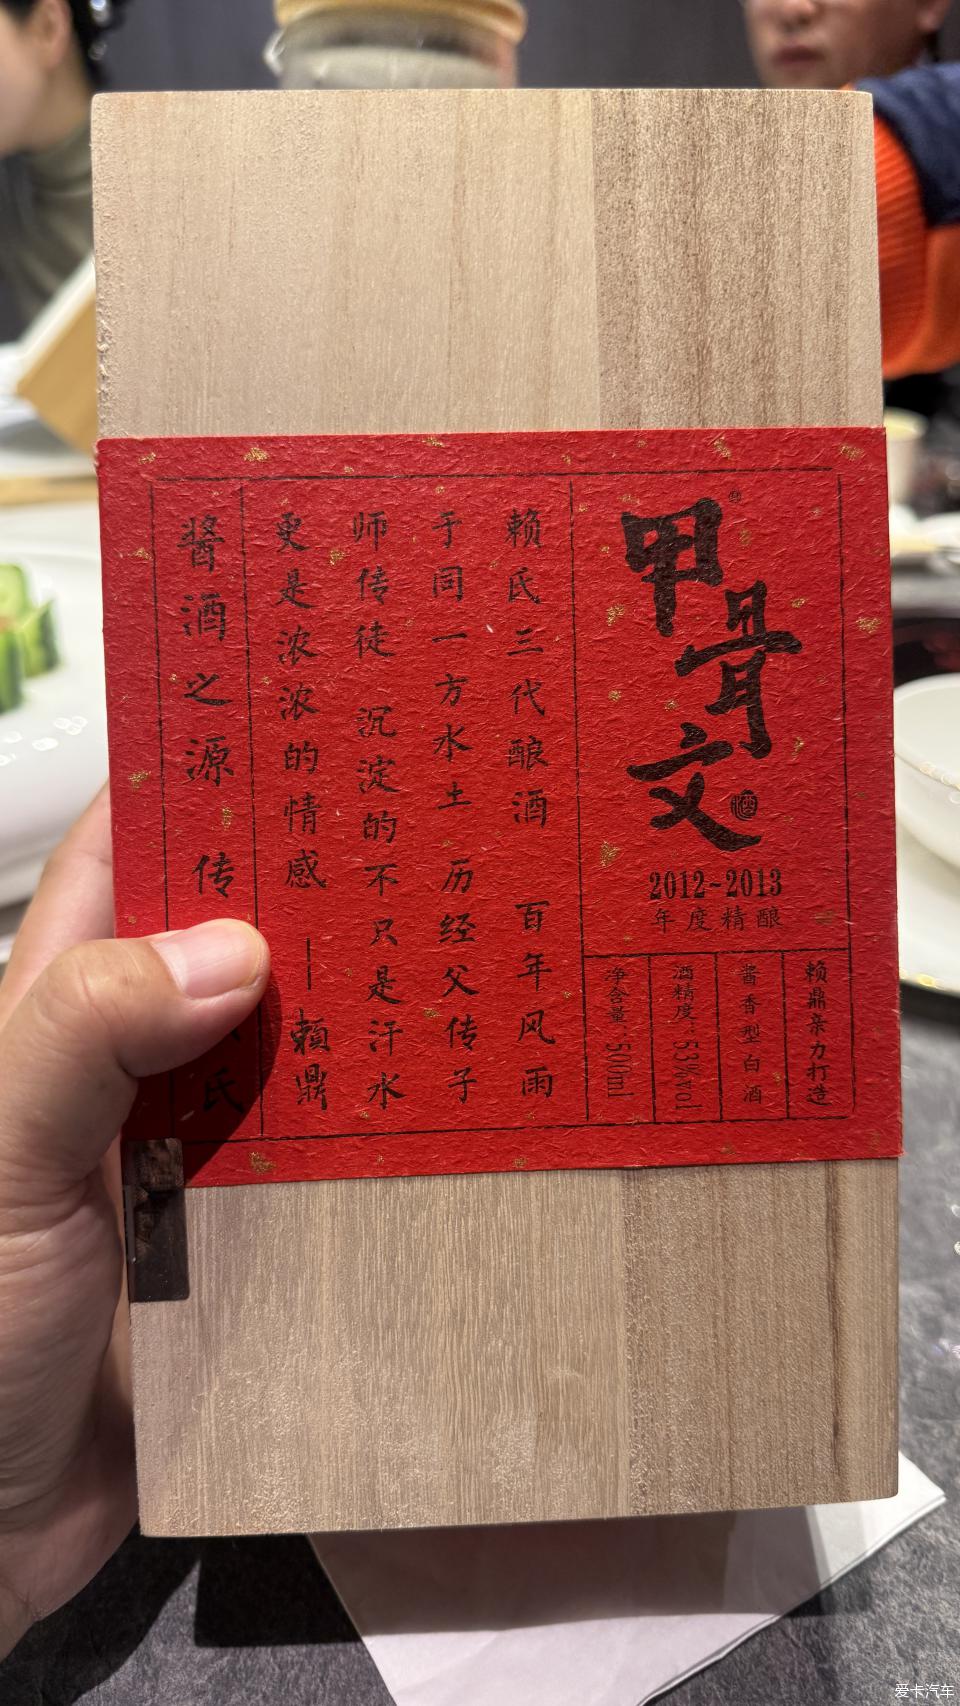 甲骨文
2012~2013
年度精酿
赖鼎亲力打造
酱香型白酒
酒精度:53%vol
净含量:500ml
赖氏三代酿酒 百年风雨
于同一方水土 历经父传子
师传徒 沉淀的不只是汗水
更是浓浓的情感 — 賴鼎
醬酒之源 传 氏
爱卡汽车